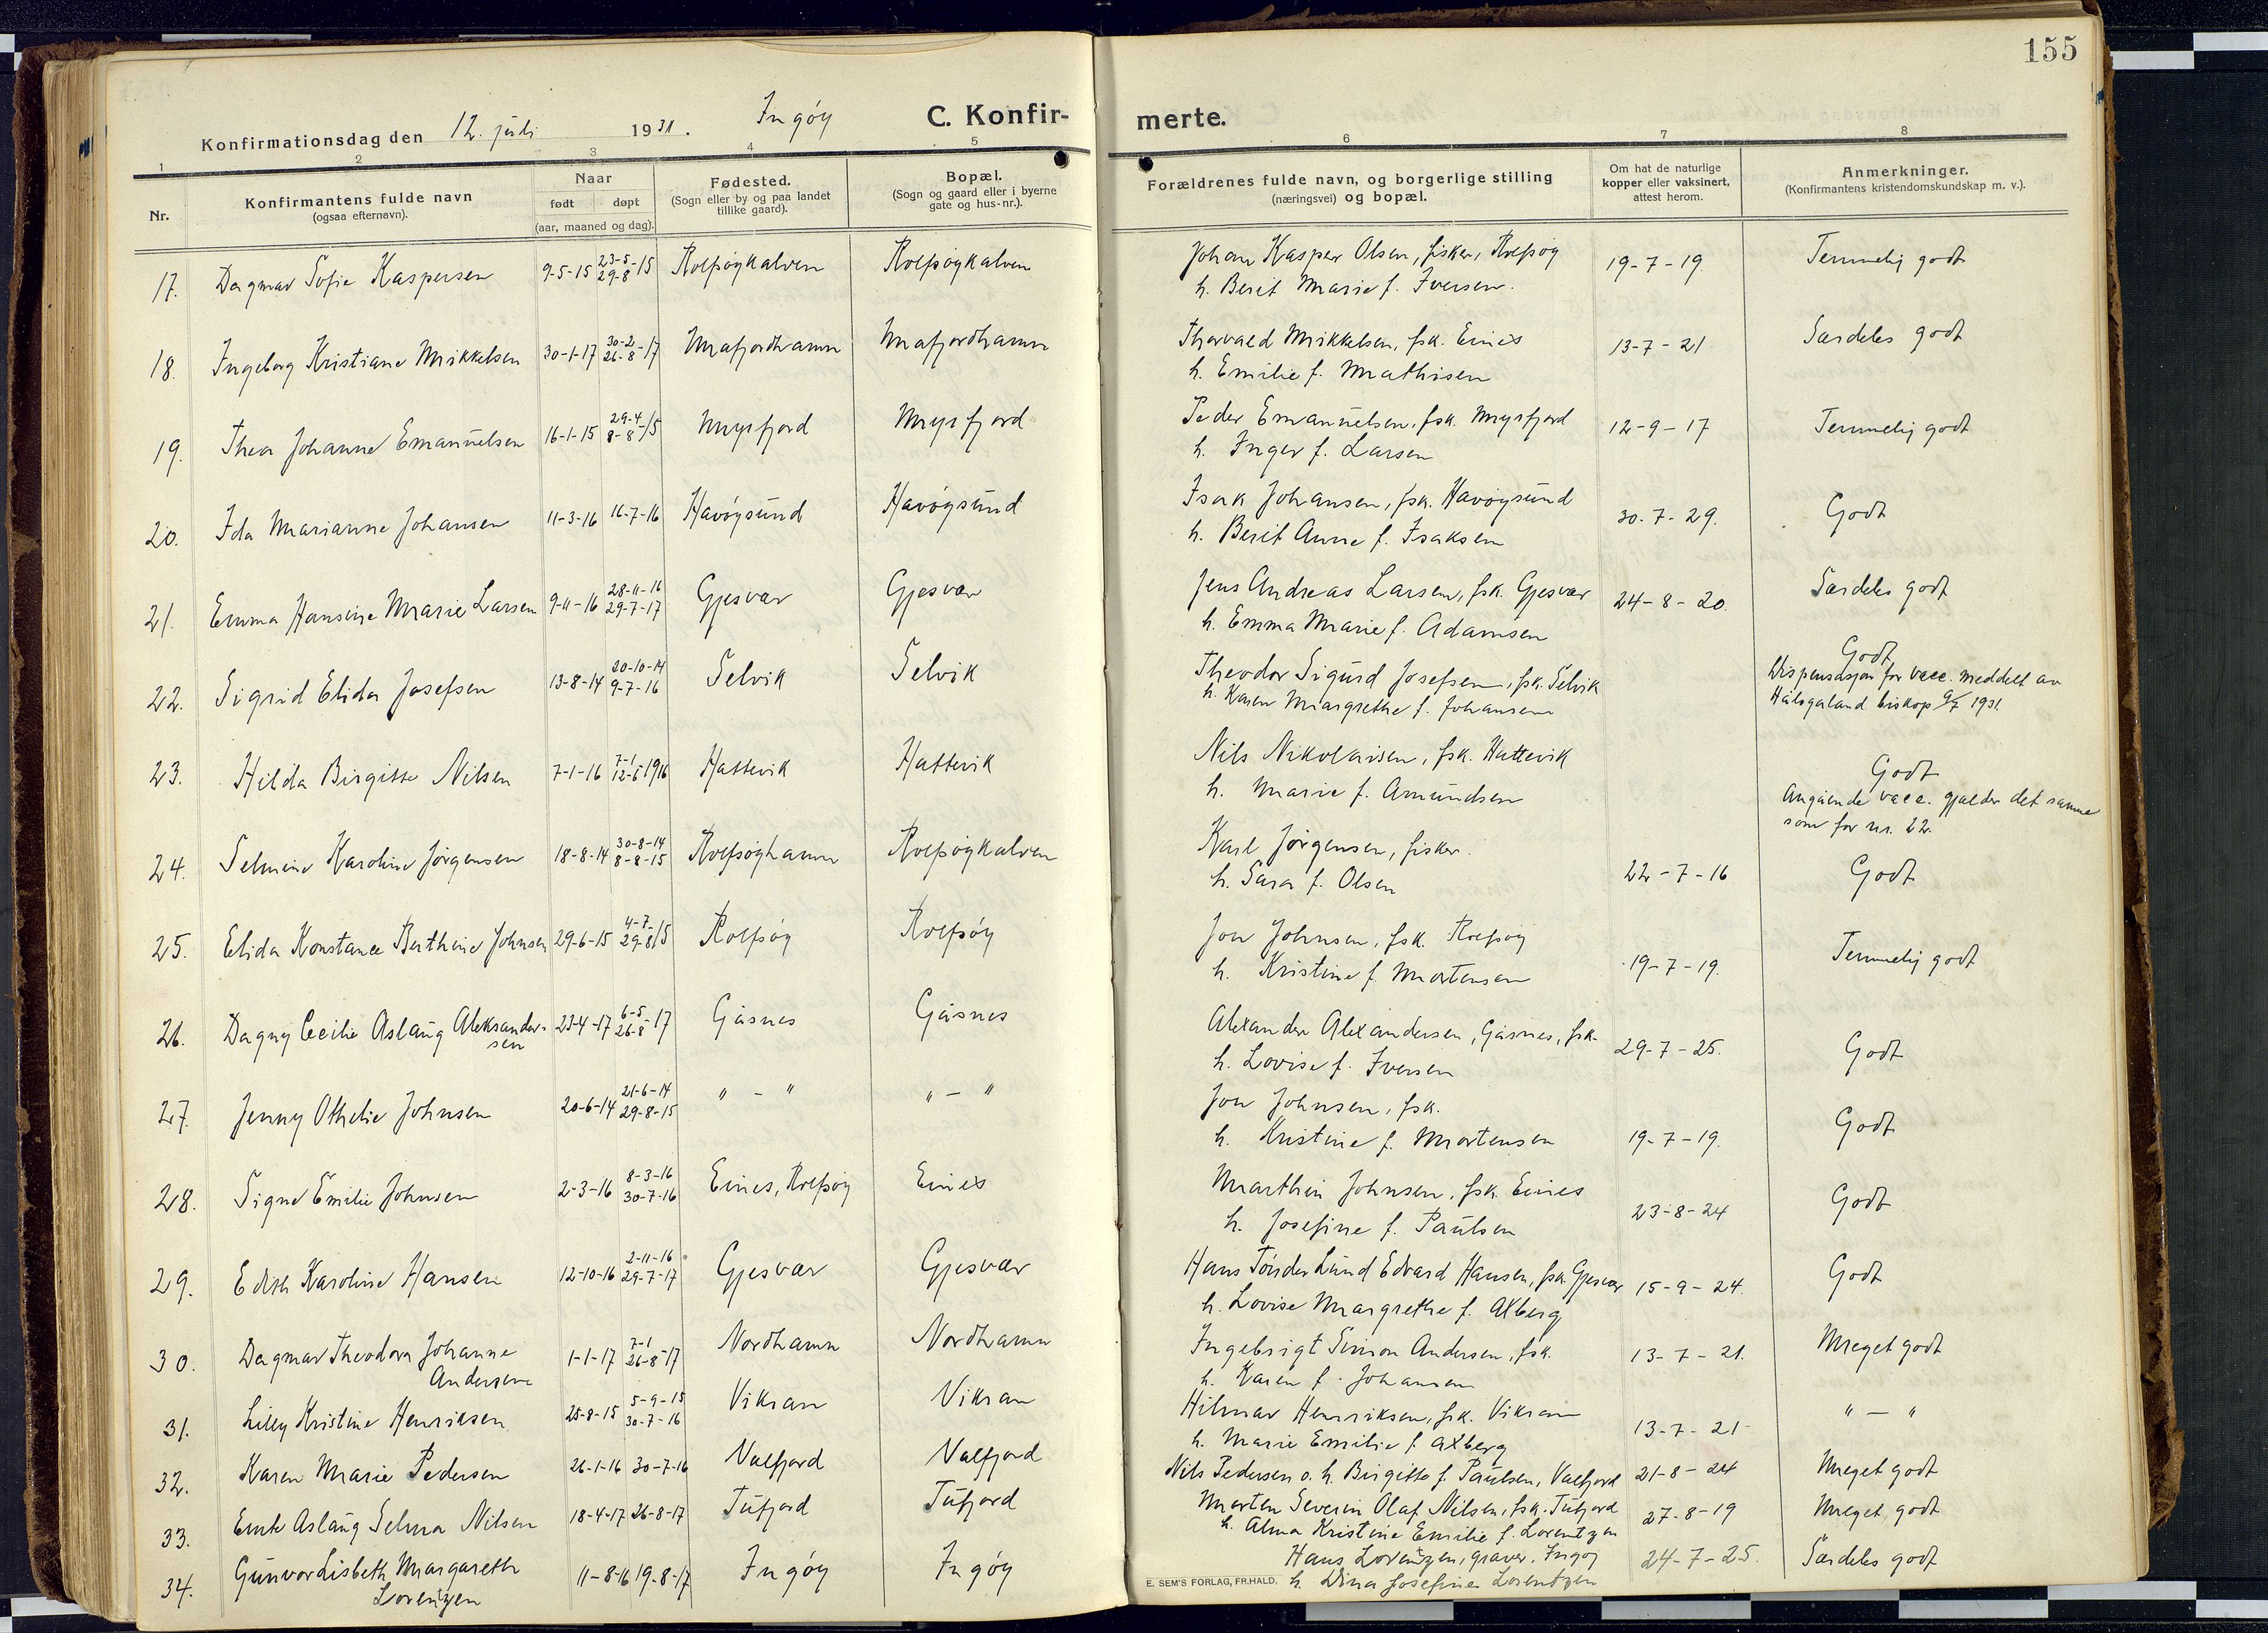 155
Konfirmationsdag den 12. juli 1931. Ingöy C. Konfir-
merte.
1 2 3 4 5 6 7 8
Nr.
Konfirmantens fulde navn
(ogsaa efternavn).
Naar
født døpt
(aar, maaned og dag).
Fødested.
(Sogn eller by og paa landet
tillike gaard).
Bopæl.
(Sogn og gaard eller i byerne
gate og hus-nr.).
Forældrenes fulde navn, og borgerlige stilling
(næringsvei) og bopæl.
Om hat de naturlige
kopper eller vaksinert,
attest herom.
Anmerkninger.
(Konfirmantens kristendomskundskap m. v.).
17. Dagmar Sofie Kaspersen 9-5-15 23-5- 29-8-15 Rolfsöykalven Rolfsöykalven Johan Kasper Olsen, fisker, Rolfsöy 19-7-19 Temmelig godt
h. Berit Marie f. Iversen.
18. Ingeborg Kristiane Mikkelsen 30-1-17 30-2- 26-8-17 Mafjordhamn Mafjordhamn Thorvald Mikkelsen, fsk. Eines 13-7-21 Særdeles godt
h. Emilie f. Mathisen
19. Thea Johanne Emanuelsen 16-1-15 29-4 8-8-15 Myrfjord Myrfjord Peder Emanuelsen, fsk. Myrfjord 12-9-17 Temmelig godt
h. Inger f. Larsen
20. Ida Marianne Johansen 11-3-16 16-7-16 Havöysund Havöysund Isak Johansen, fsk. Havöysund 30-7-29. Godt
h. Berit Anne f. Isaksen
21. Emma Hansine Marie Larsen 9-11-16 28-11-16 29-7-17 Gjesvær Gjesvær Jens Andreas Larsen, fsk. Gjesvær 24-8-20. Særdeles godt
h. Emma Marie f. Adamsen
22. Sigrid Elida Josefsen 13-8-14 20-10-14 9-7-16 Selvik Selvik Theodor Sigurd Josefsen, fsk. Selvik Godt
h. Karen Margrethe f. Johansen
Dispensasjon for vacc. meddelt av
Hålogaland biskop 9/7 1931.
23. Hilda Birgitte Nilsen 7-1-16 7-1 12-6 1916 Hattevik Hattevik Nils Nikolaisen, fsk. Hattevik Godt
h. Marie f. Amundsen
Angående vacc. gjælder det samme
som for nr. 22.
24. Selmine Karoline Jörgensen 18-8-14 30-8-14 8-8-15 Rolfsöyhamn Rolfsöykalven Karl Jörgensen, fisker. 22-7-16 Godt
h. Sara f. Olsen
25. Elida Konstance Berthine Johnsen 29-6-15 4-7- 29-8-15 Rolfsöy Rolfsöy Jon Johnsen, fsk. Rolfsöy 19-7-19. Temmelig godt
h. Kristine f. Mortensen
26. Dagny Cecilie Aslaug Aleksander-
sen 23-4-17 6-5- 26-8-17 Gåsnes Gåsnes Alexander Alexandersen, Gåsnes, fsk. 29-7-25. Godt
h. Lovise f. Iversen
27. Jenny Othelie Johnsen 20-6-14 21-6-14 29-8-15 " - " " - " Jon Johnsen, fsk. 19-7-19. Godt
h. Kristine f. Mortensen
28. Signe Emilie Johnsen 2-3-16 8-3-16 30-7-16 Eines, Rolfsöy Eines Marthin Johnsen, fsk. Eines 23-8-24 Godt
h. Josefine f. Paulsen
29. Edith Karoline Hansen 12-10-16 2-11-16 29-7-17 Gjesvær Gjesvær Hans Tönder Lund Edvard Hansen, fsk. Gjesvær 15-9-24. Godt
h. Lovise Margrethe f. Axberg
30. Dagmar Theodora Johanne
Andersen 1-1-17 7-1 26-8-17 Nordhamn Nordhamn Ingebrigt Simon Andersen, fsk. 13-7-21. Meget godt
h. Karen f. Johansen
31. Lilly Kristine Henriksen 25-8-15 5-9-15 30-7-16 Vikran Vikran Hilmar Henriksen, fsk. Vikran 13-7-21 " - "
h. Marie Emilie f. Axberg
32. Karen Marie Pedersen 26-1-16 30-7-16 Valfjord Valfjord Nils Pedersen o. h. Birgitte f. Paulsen, Valfjord 21-8-24 Meget godt
33. Aslaug Selma Nilsen 18-4-17 26-8-17 Tufjord Tufjord Morten Severin Olaf Nilsen, fsk. Tufjord 27-8-19 Meget godt
h. Alma Kristine Emilie f. Lorentzen
34. Gunvor Lisbeth Margareth
Lorentzen 11-8-16 19-8-17 Ingöy Ingöy Hans Lorentzen, graver, Ingöy 24-7-25. Særdeles godt
h. Dina Josefine Lorentzen
E. SEM'S FORLAG, FR.HALD.